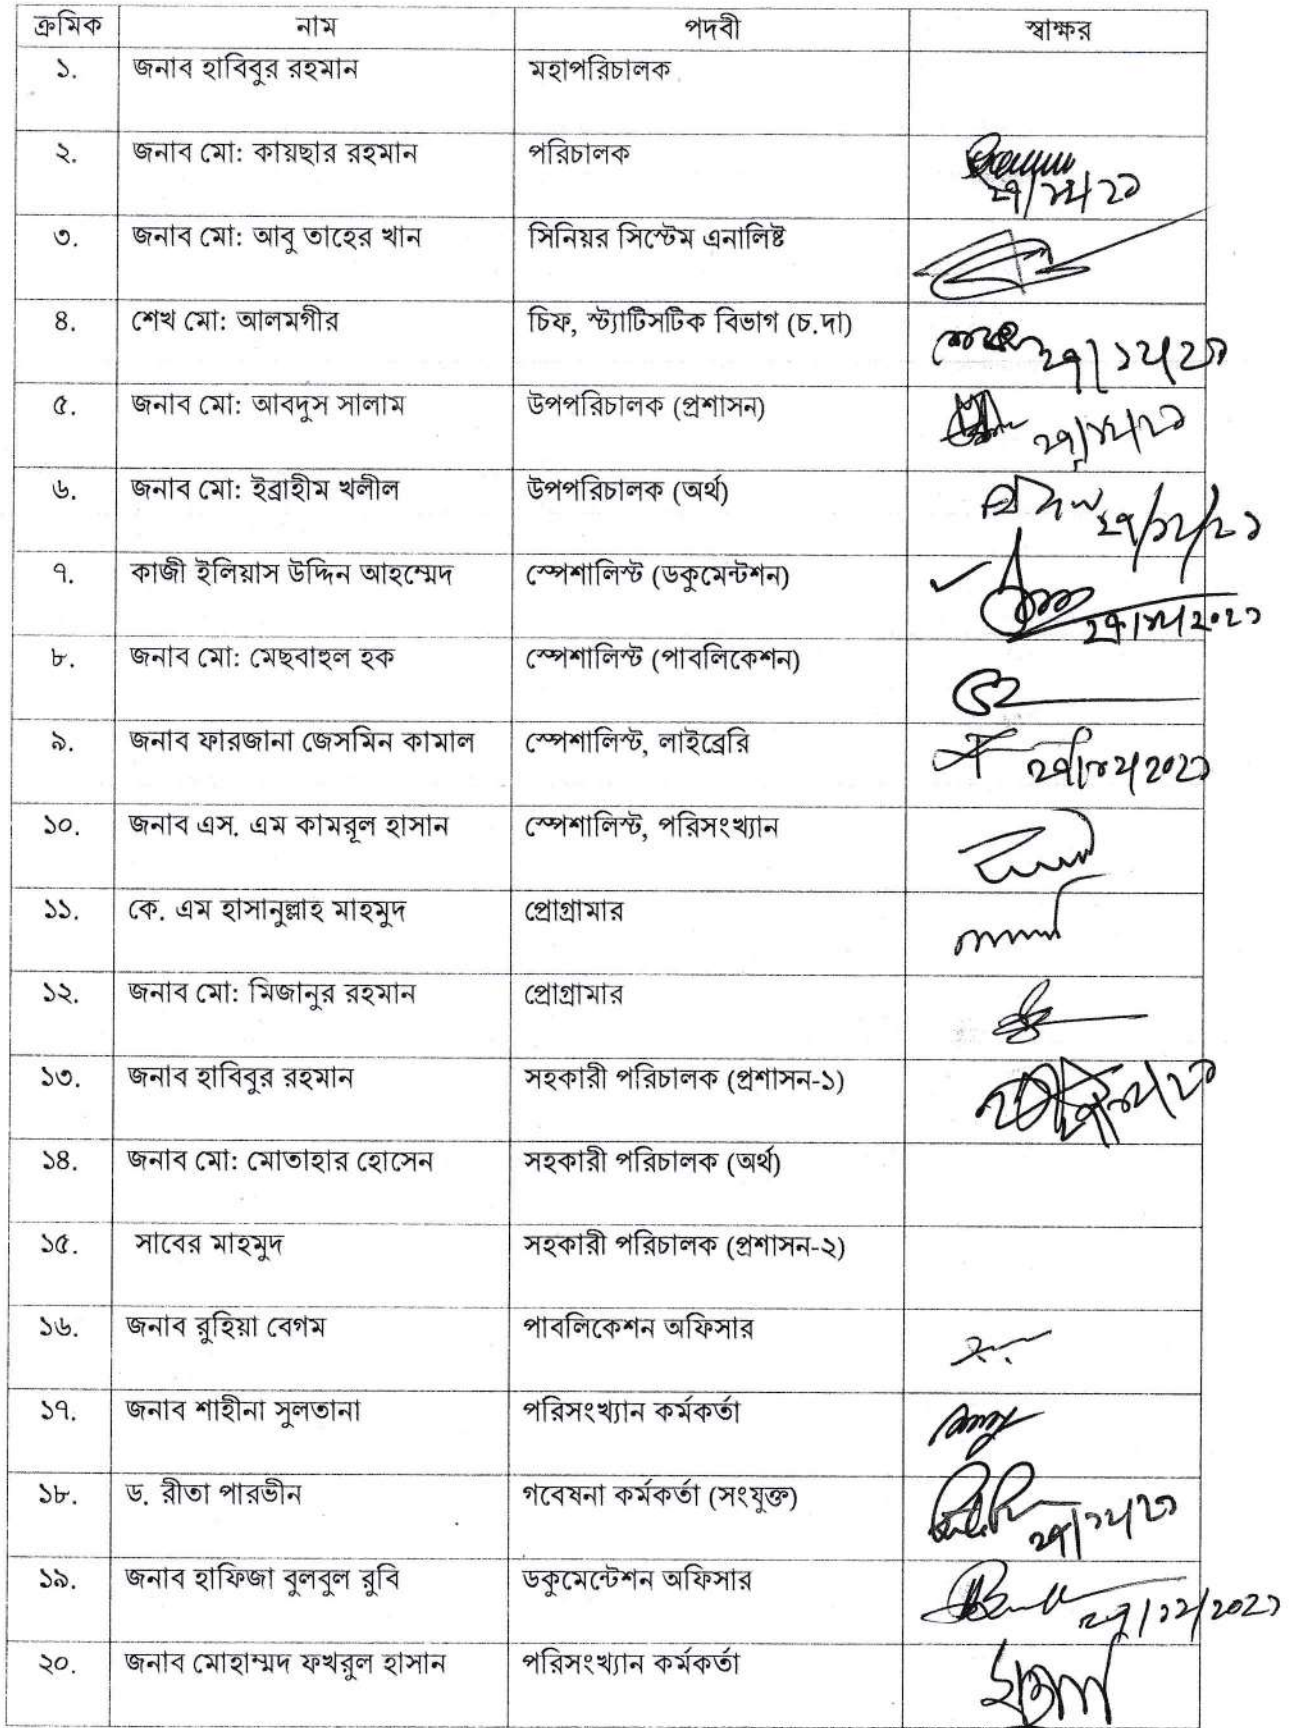 ক্রমিক নাম পদবী স্বাক্ষর
১. জনাব হাবিবুর রহমান মহাপরিচালক
২. জনাব মো: কায়ছার রহমান পরিচালক
২৭/১২/২১
৩. জনাব মো: আবু তাহের খান সিনিয়র সিস্টেম এনালিষ্ট
৪. শেখ মো: আলমগীর চিফ, স্ট্যাটিসটিক বিভাগ (চ.দা)
২৭/১২/২১
৫. জনাব মো: আবদুস সালাম উপপরিচালক (প্রশাসন)
২৭/১২/২১
৬. জনাব মো: ইব্রাহীম খলীল উপপরিচালক (অর্থ)
২৭/১২/২১
৭. কাজী ইলিয়াস উদ্দিন আহম্মেদ স্পেশালিস্ট (ডকুমেন্টশন)
২৭/১২/২০২১
৮. জনাব মো: মেছবাহুল হক স্পেশালিস্ট (পাবলিকেশন)
৯. জনাব ফারজানা জেসমিন কামাল স্পেশালিস্ট, লাইব্রেরি
২৭/১২/২০২১
১০. জনাব এস. এম কামরূল হাসান স্পেশালিস্ট, পরিসংখ্যান
১১. কে. এম হাসানুল্লাহ মাহমুদ প্রোগ্রামার
১২. জনাব মো: মিজানুর রহমান প্রোগ্রামার
১৩. জনাব হাবিবুর রহমান সহকারী পরিচালক (প্রশাসন-১)
১৪. জনাব মো: মোতাহার হোসেন সহকারী পরিচালক (অর্থ)
১৫. সাবের মাহমুদ সহকারী পরিচালক (প্রশাসন-২)
১৬. জনাব রুহিয়া বেগম পাবলিকেশন অফিসার
১৭. জনাব শাহীনা সুলতানা পরিসংখ্যান কর্মকর্তা
১৮. ড. রীতা পারভীন গবেষনা কর্মকর্তা (সংযুক্ত)
২৭/১২/২১
১৯. জনাব হাফিজা বুলবুল রুবি ডকুমেন্টেশন অফিসার
২৭/১২/২০২১
২০. জনাব মোহাম্মদ ফখরুল হাসান পরিসংখ্যান কর্মকর্তা